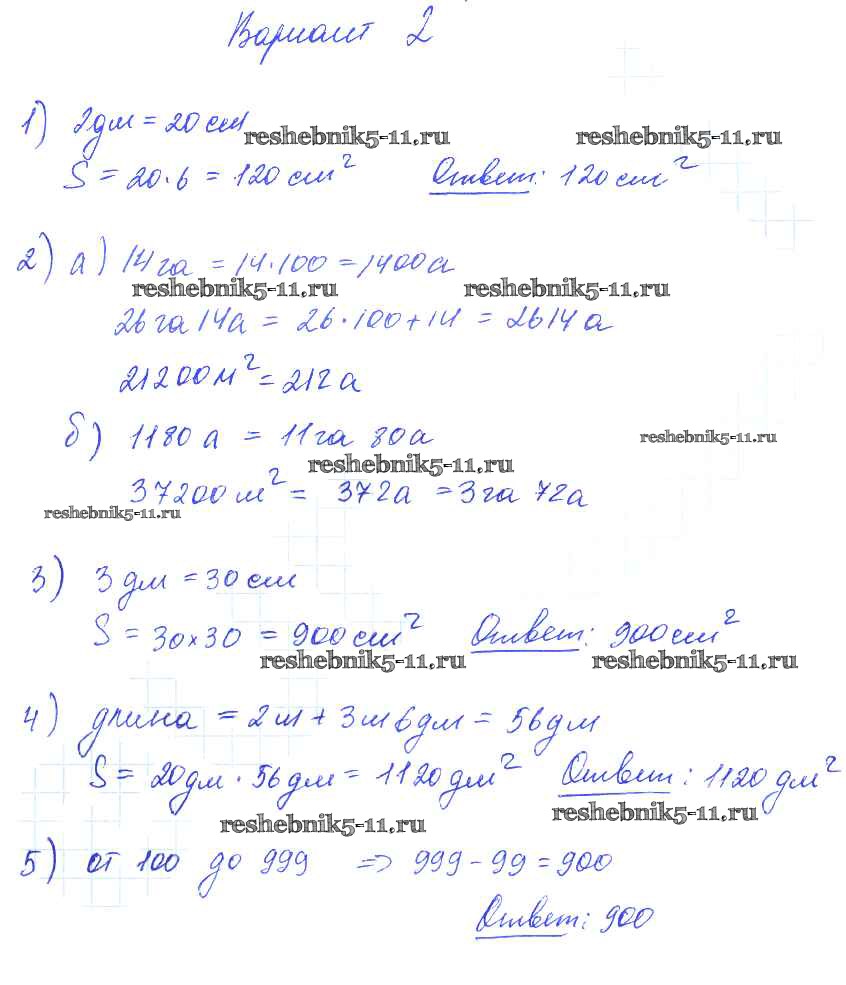 Вариант 2
1) 2дм = 20 см
reshebnik5-11.ru reshebnik5-11.ru
S = 20·6 = 120 см² Ответ: 120 см²
2) а) 14га = 14·100 = 1400а
reshebnik5-11.ru reshebnik5-11.ru
26га 14а = 26·100+14 = 2614а
21200м² = 212а
б) 1180 а = 11га 80а
reshebnik5-11.ru
reshebnik5-11.ru
37200 м² = 372а = 3га 72а
reshebnik5-11.ru
3) 3 дм = 30 см
S = 30×30 = 900 см² Ответ: 900 см²
reshebnik5-11.ru reshebnik5-11.ru
4) длина = 2м + 3м 6дм = 56дм
S = 20дм · 56дм = 1120 дм² Ответ: 1120 дм²
reshebnik5-11.ru reshebnik5-11.ru
5) от 100 до 999 => 999 - 99 = 900
Ответ: 900